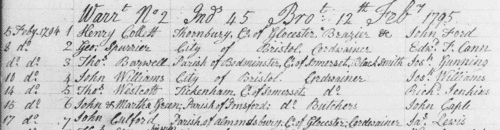 Warrt. No 2 Ind 45 Brot. 12th Feby 1795
5 Feby. 1794 1 Henry Collett Thornbury, C. of Glocester Brazier &c John Ford
8 do 2 Geo: Spurrier City of Bristol Cordwainer Edwd. T. Cann
do do 3 Thos. Barwell Parish of Bedminster, C. of Somerset, Black Smith Jos: Gunning
10 do 4 John Williams City of Bristol Cordwainer Jos: Williams
14 do 5 Thos. Westcott Tickenham, C. of Somerset do Richd. Jenkins
16 do 6 John & Martha Green; Parish of Publow do Butchers John Cable
17 do 7 John Culford Parish of almondsbury, C. of Glocester; Cordwainer Jas. Lewis